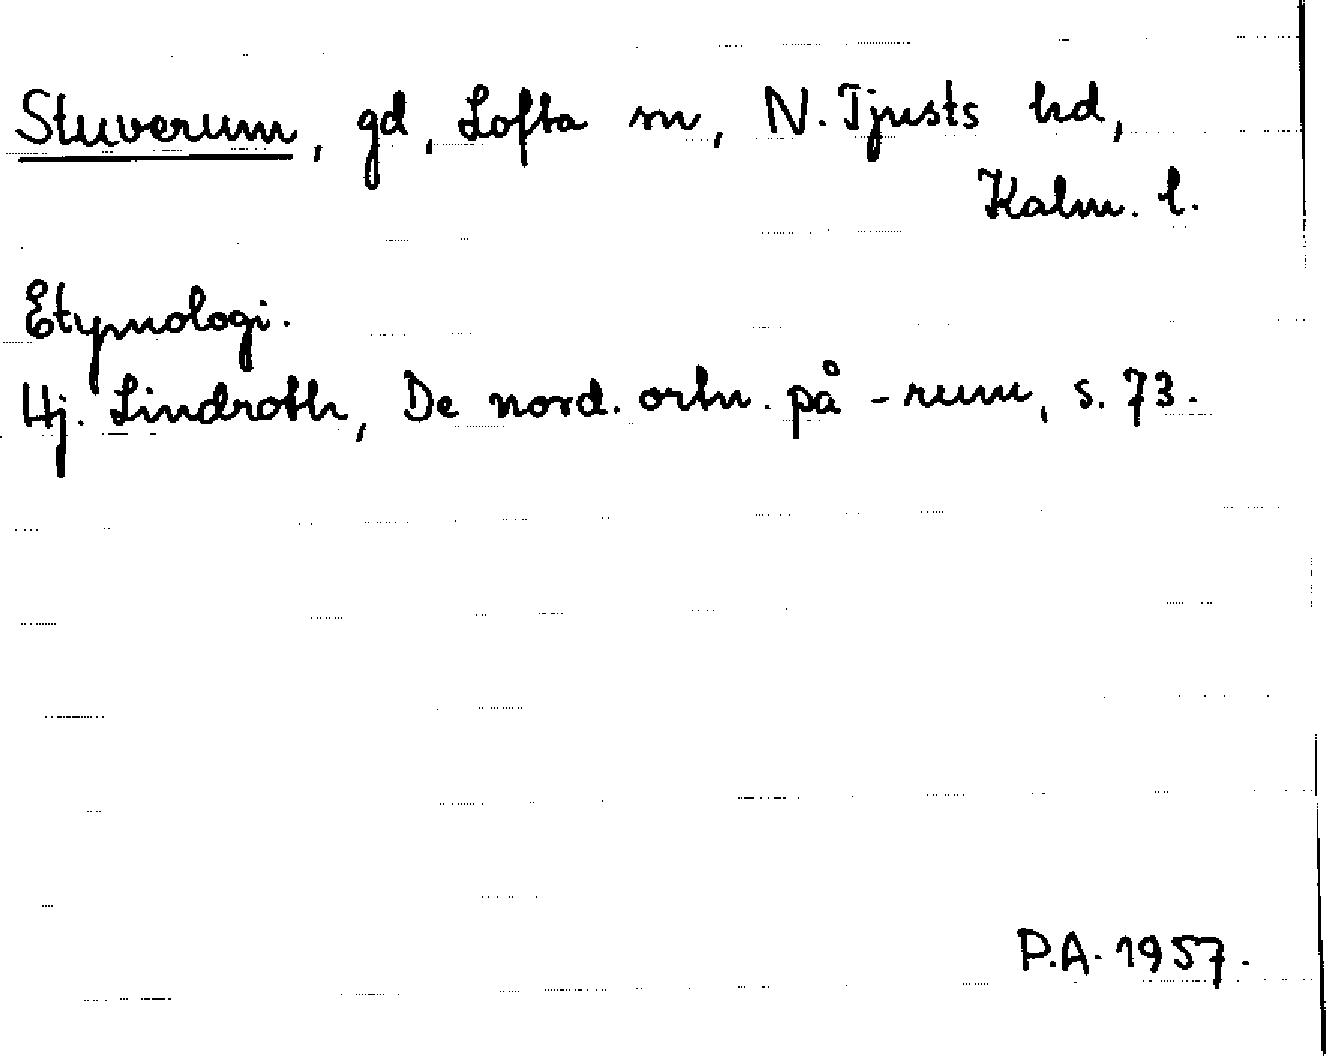 Stuverum, gd, Lofta sn, N. Tjusts hd,
Kalm. l.
Etymologi.
Hj. Lindroth, De nord. ortn. på -rum, s. 73.
P.A. 1957.